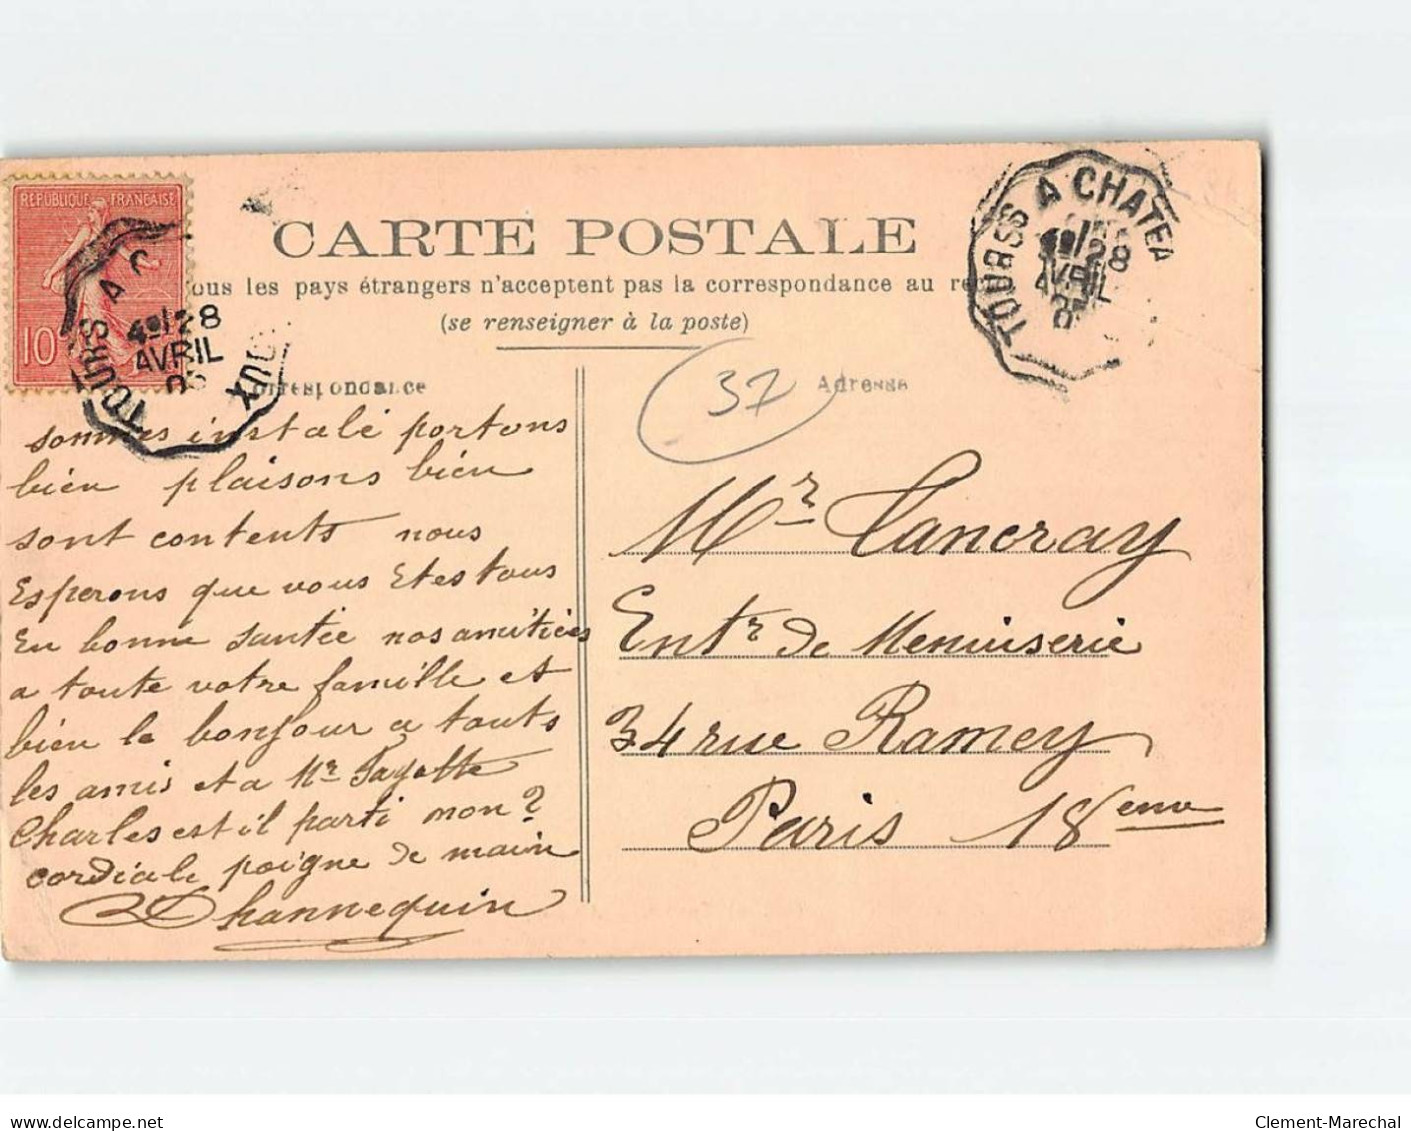 REPUBLIQUE FRANÇAISE
10
TOURS A C UX
4º/28
AVRIL
TOURS A CHATEA
4º/28
AVRIL
CARTE POSTALE
ous les pays étrangers n'acceptent pas la correspondance au re
(se renseigner à la poste)
orrespondance
Adresse
37
sommes instalé portons
bien plaisons bien
sont contents nous
Esperons que vous Etes tous
En bonne santée nos amitiées
a toute votre famille et
bien le bonjour a touts
les amis et a Mr Payotte
Charles est il parti mon?
cordiale poigne de main
Channequin
Mr Tancray
Entr de Menuiserie
34 rue Ramey
Paris 18eme
www.delcampe.net
Clement-Marechal